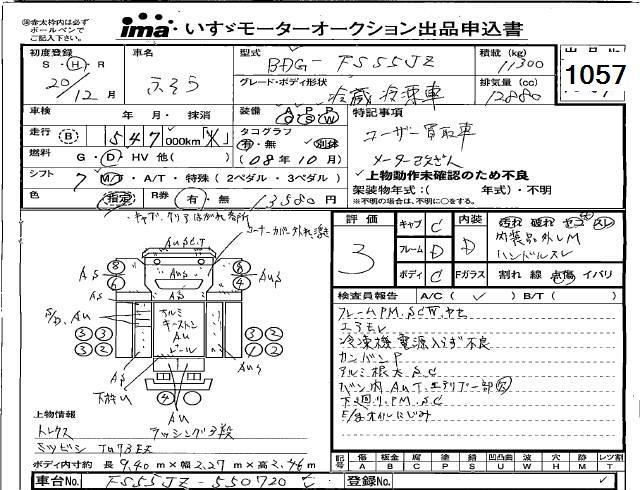 ※赤太枠内は必ず
ボールペンで
ご記入下さい。
ima・いすゞモーターオークション出品申込書
初度登録
S・H・R
20/12月
車名
ふそう
型式
BDG-FS55JZ
積載 (kg)
11300
グレード・ボディ形状
冷蔵冷凍車
排気量 (cc)
12880
1057
車検
年 月・ 抹消
装備
A P P
C S W
特記事項
ユーザー買取車
メーター改ざん
走行 (B) 547,000km
タコグラフ
有・無 別体
(08年10月)
燃料
G・D・HV 他( )
シフト
7 MT・A/T・特殊 (2ペダル・3ペダル)
✓上物動作未確認のため不良
架装物年式：( 年式)・不明
※不明の場合は、不明に○をする。
色
指定
R券 有・無
13580円
キャブ、クリアはがれ各所
コーナーカバー外れ
評価
3
キャブ C
フレーム D
ボディ C
内装 D
Fガラス
汚れ 破れ コゲ スレ
内装品外しM
ハンドルスレ
割れ 線 点傷 イバリ
検査員報告 A/C (✓) B/T ( )
フレームPM.SCW.ヤセ
エアモレ
冷凍機電源入らず不良
カンバンP
アルミ根太S.C
バン内AUT.エアリブ一部穴
下廻り.PM.SC
E/gオイルにじみ
アルミ
キーストン
AU
レール
上物情報
トレクス ラッシング3段
ミツビシ TU73EZ
ボディ内寸約 長 9.40m×幅 2.27m×高 2.46m
記号
傷 板金 腐 凹 錆 凹凸曲 波 穴 跡 レツ割
A B C P S U W H M T
車台No.
FS55JZ-550720
登録No.